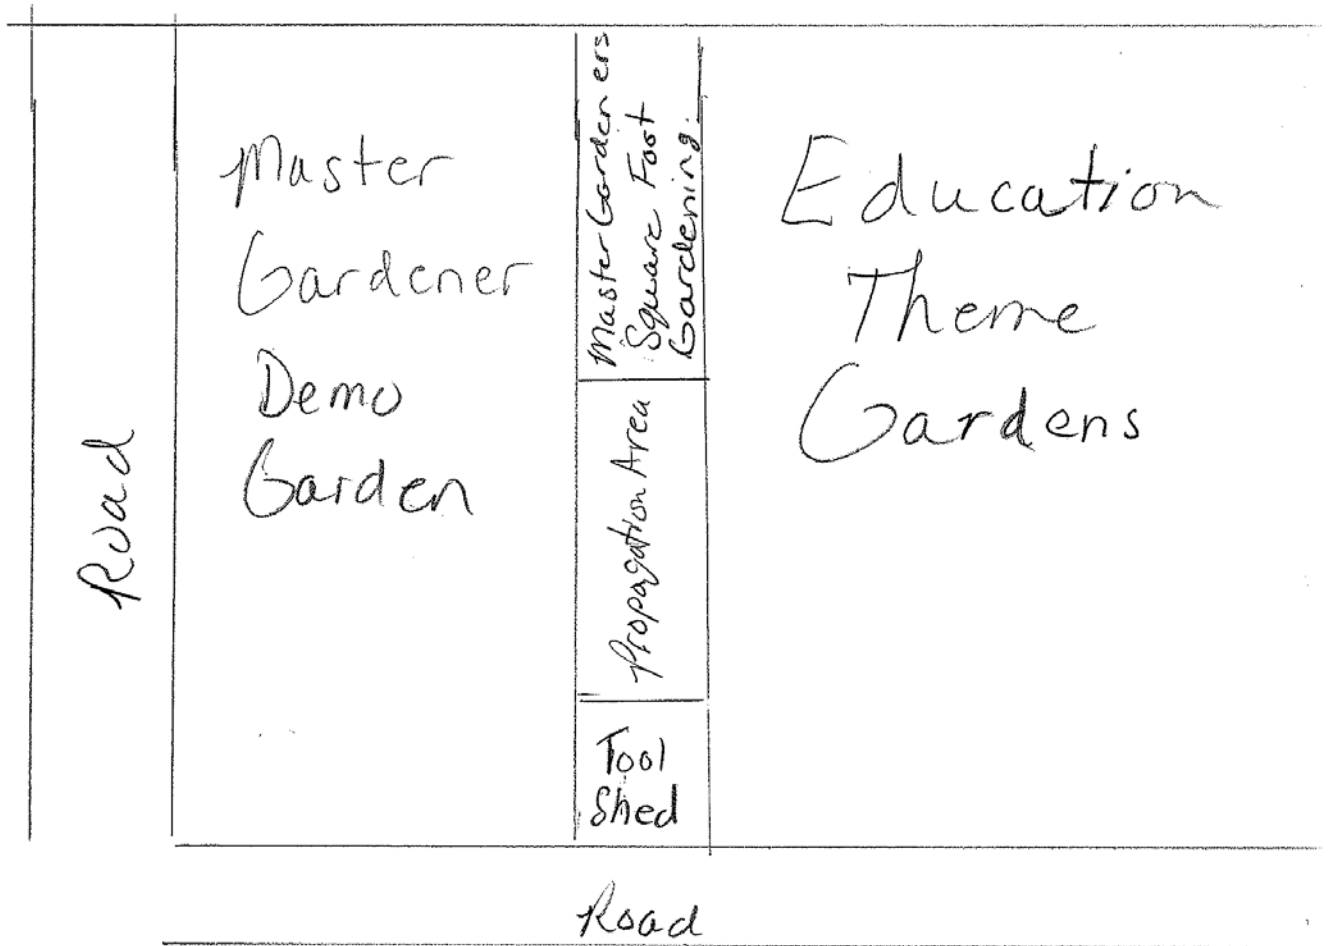 Road
Master
Gardener
Demo
Garden
Master Gardeners
Square Foot
Gardening.
Propagation Area
Tool
Shed
Education
Theme
Gardens
Road